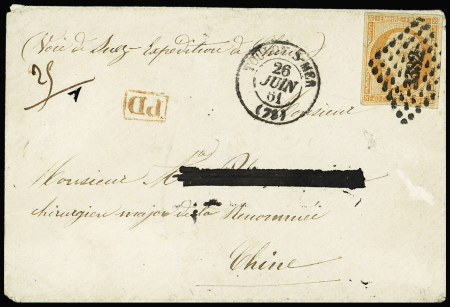 Voie de Suez Expedition de Chine
25
TOULON-S-MER
26
JUIN
61
(78)
PD
Monsieur
Monsieur
chirurgien major de la Renommée
Chine